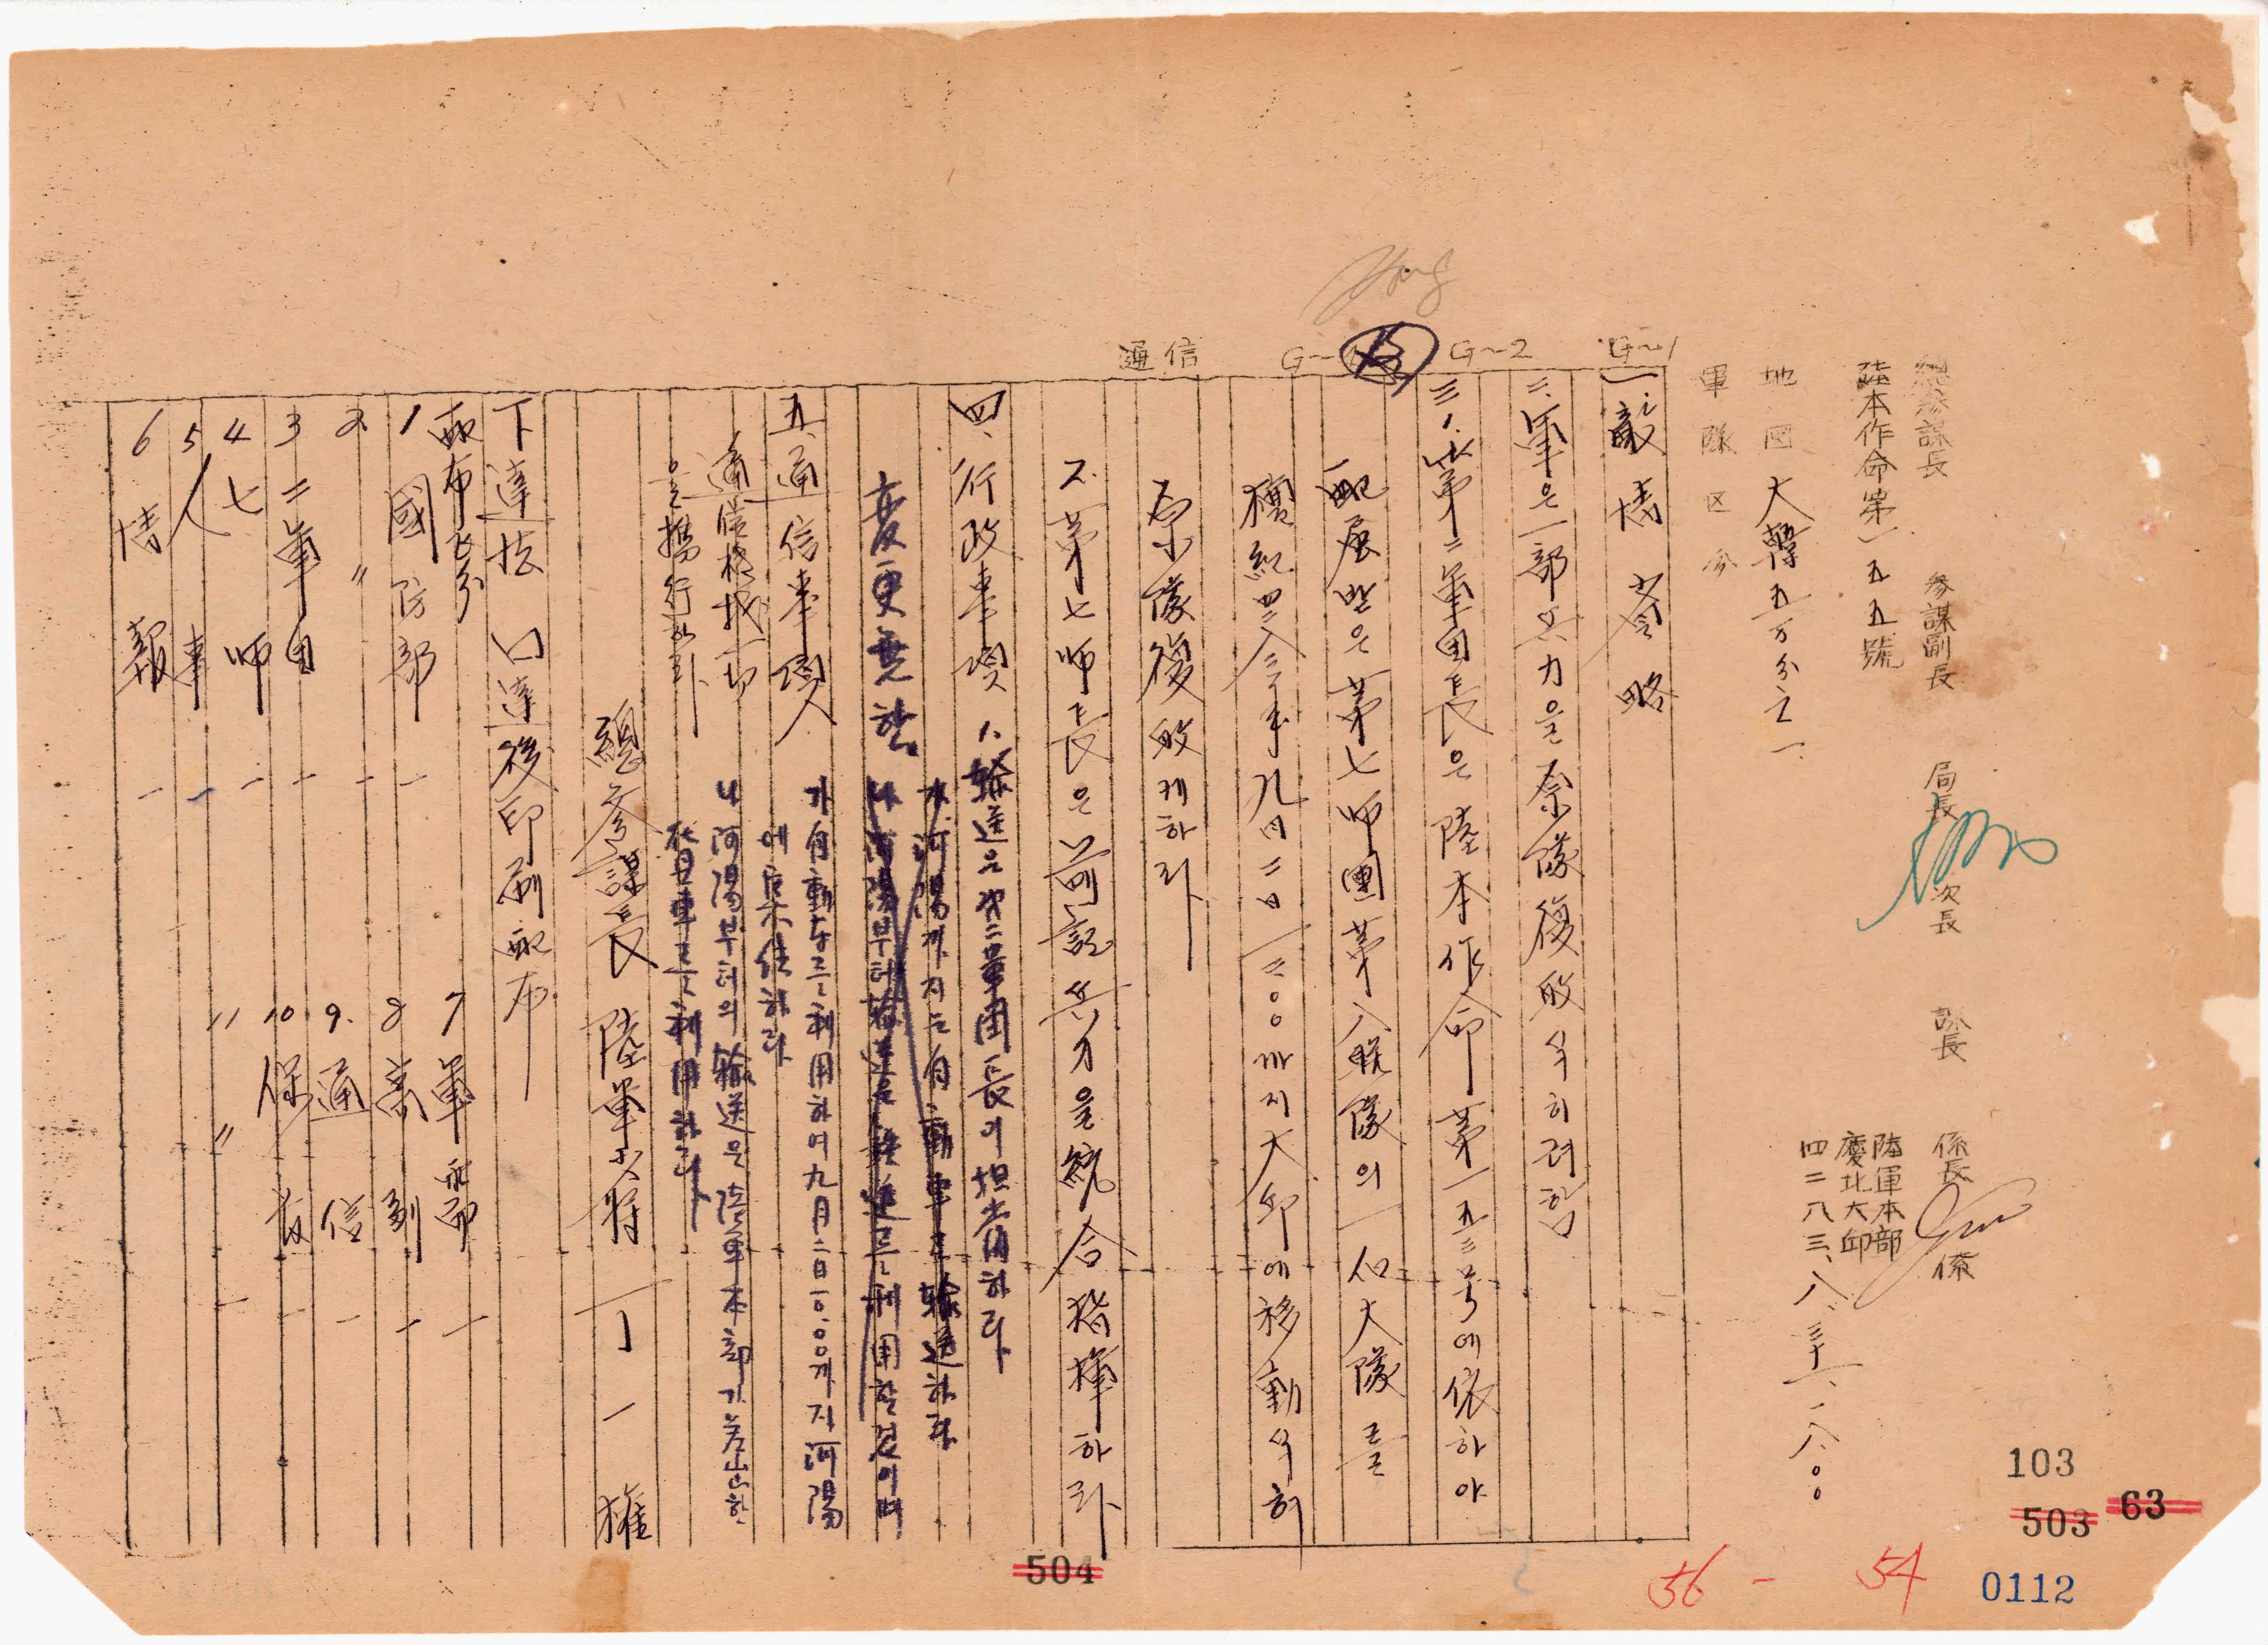 總參謀長 參謀副長 局長 次長 課長 係長 係
陸本作命第一五五號
陸軍本部
慶北大邱
四二八三、八、三一、一八、〇〇
地図 大韓五万分之一
軍隊区分
G~1
G~2
通信
一、敵情 省略
二、軍은 一部 兵力을 原隊復皈 식히려 함
三、1. 第二軍団長은 陸本作命 第一五三号에 依하야
配属받은 第七師團 第八聯隊의 一個大隊를
檀紀四二八三年九月二日一三〇〇까지 大邱에 移動식혀
原隊復皈케하라
2. 第七師長은 前記 兵力을 統合 指揮하라
四、行政事項 1. 輸送은 第二軍団長이 担當하라
가. 河陽까지는 自動車로 輸送하라
나. 河陽부터 輸送은 鉄道를 利用할것이며
変更無함
가 自動車를 利用하여 九月二日一〇.〇〇까지 河陽
에 集結하라
나 河陽부터의 輸送은 陸軍本部가 差出한
自動車를 利用하라
五、通信事項
通信機械一切
은 携行하라
總參謀長 陸軍少將 丁一權
下達法 口達後印刷配布
配布区分
1 國防部 一
2 〃 一
3 二軍団 一
4 七師 一
5 人事 一
6 情報 一
7 軍需 一
8 高副 一
9. 通信 一
10 保安 一
11 〃 一
103
503
63
504
56 - 54
0112